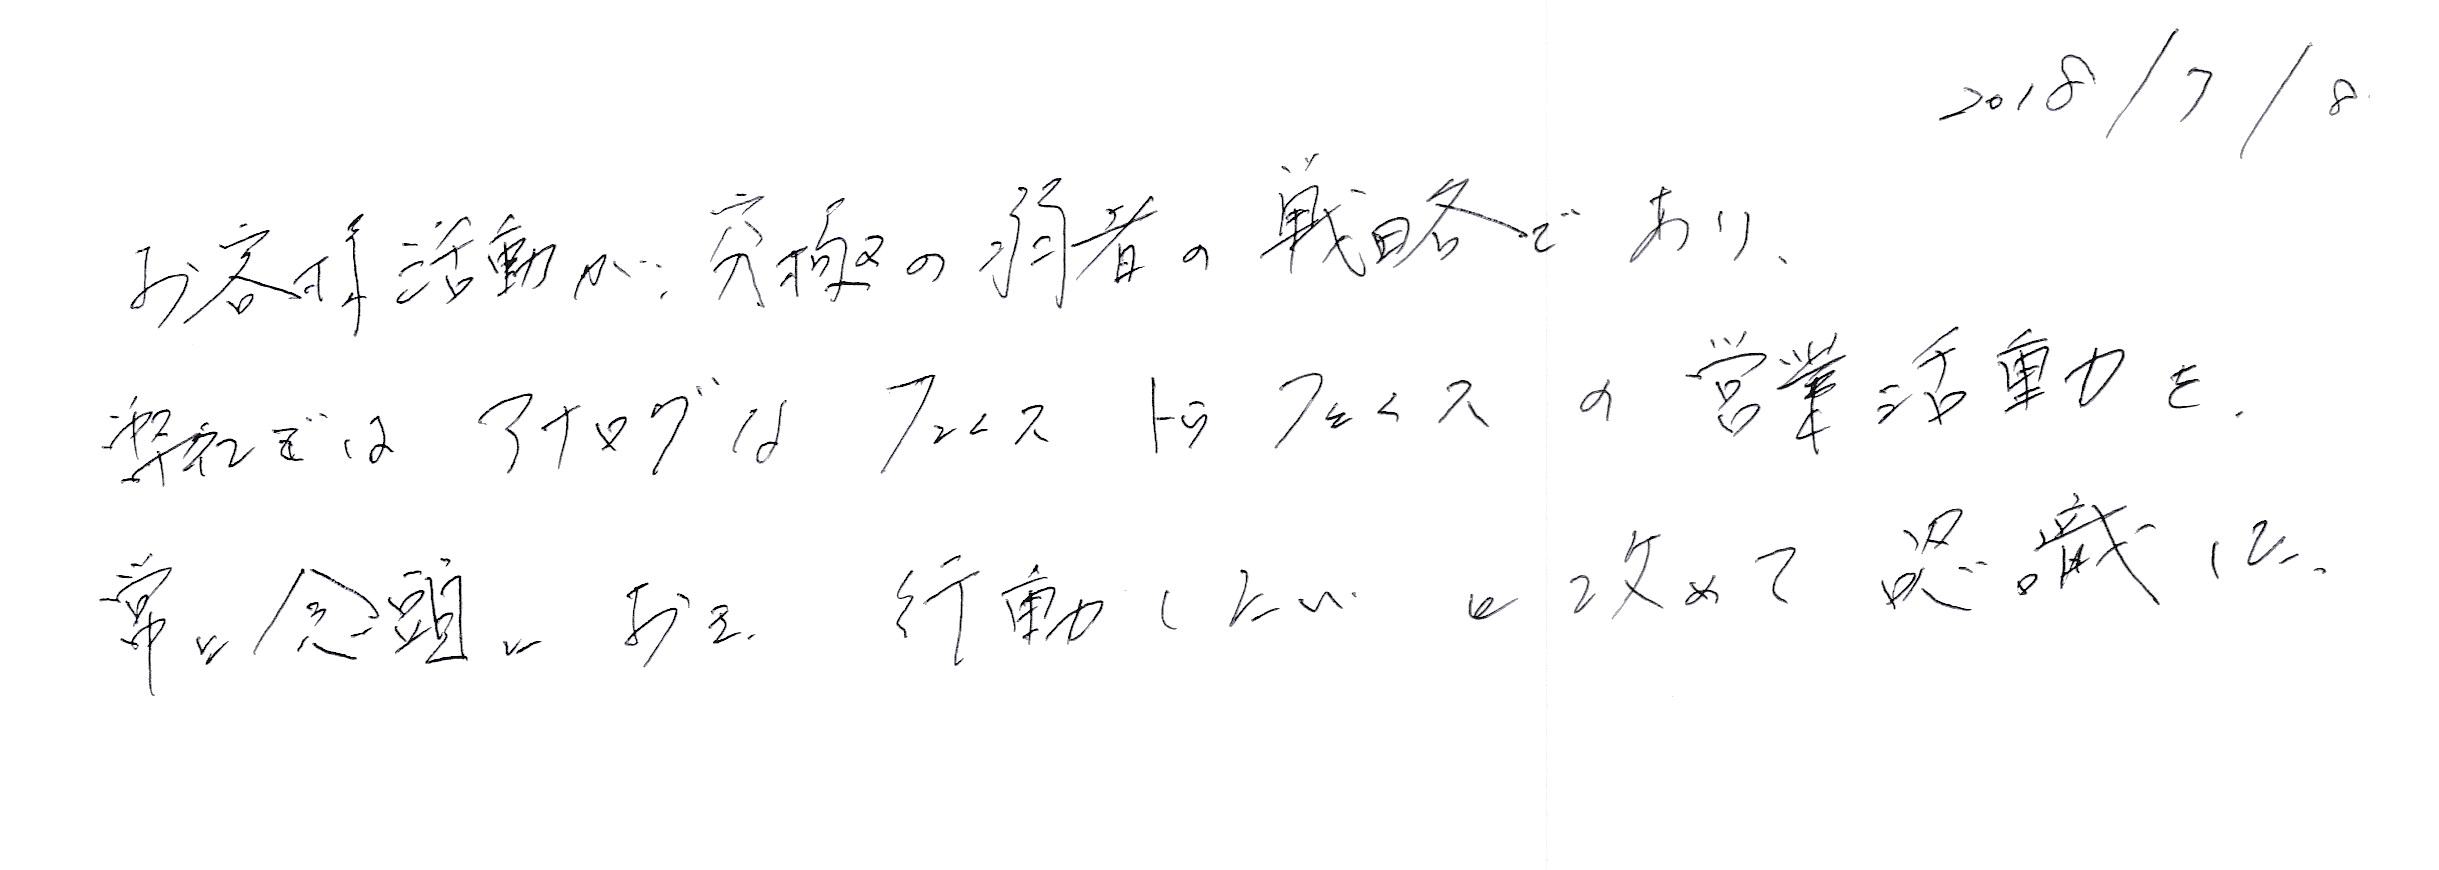 2018/7/8
お客様活動が、究極の弱者の戦略であり、
弊社ではアナログなフェイストゥフェイスの営業活動を、
常に念頭におき、行動したいと改めて認識した。